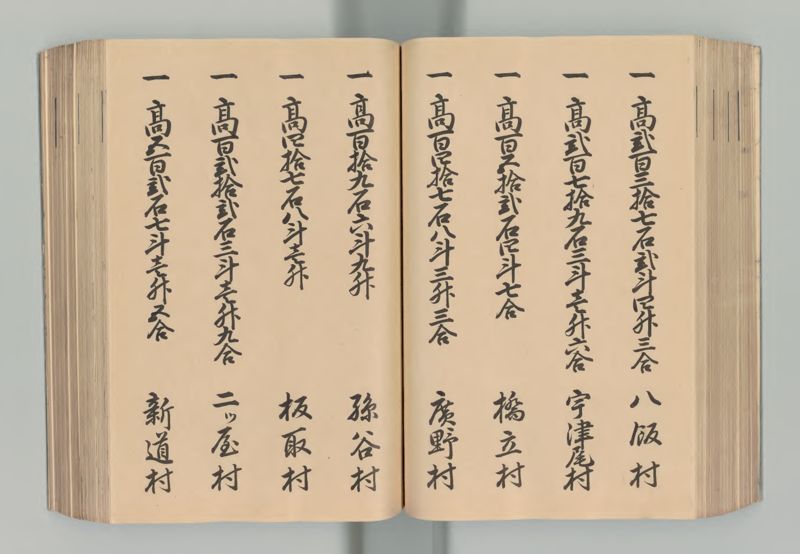 一 高弐百三拾七石弐斗四升三合 八飯村
一 高弐百七拾九石三斗壱升六合 宇津尾村
一 高百五拾弐石四斗七合 橋立村
一 高百四拾七石八斗三升三合 廣野村
一 高百拾九石六斗九升 孫谷村
一 高四拾七石八斗壱升 板取村
一 高百弐拾弐石三斗壱升九合 二ッ屋村
一 高五百弐石七斗壱升五合 新道村